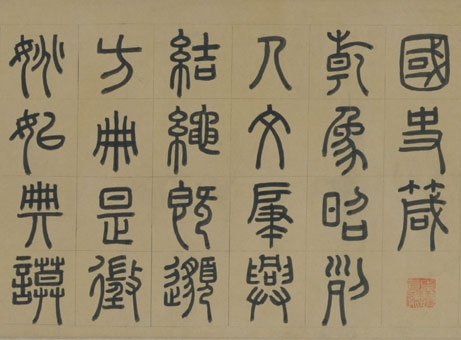 國史箴
乾象昭列
人文肇興
結繩既邈
方冊是徵
妙如典謨